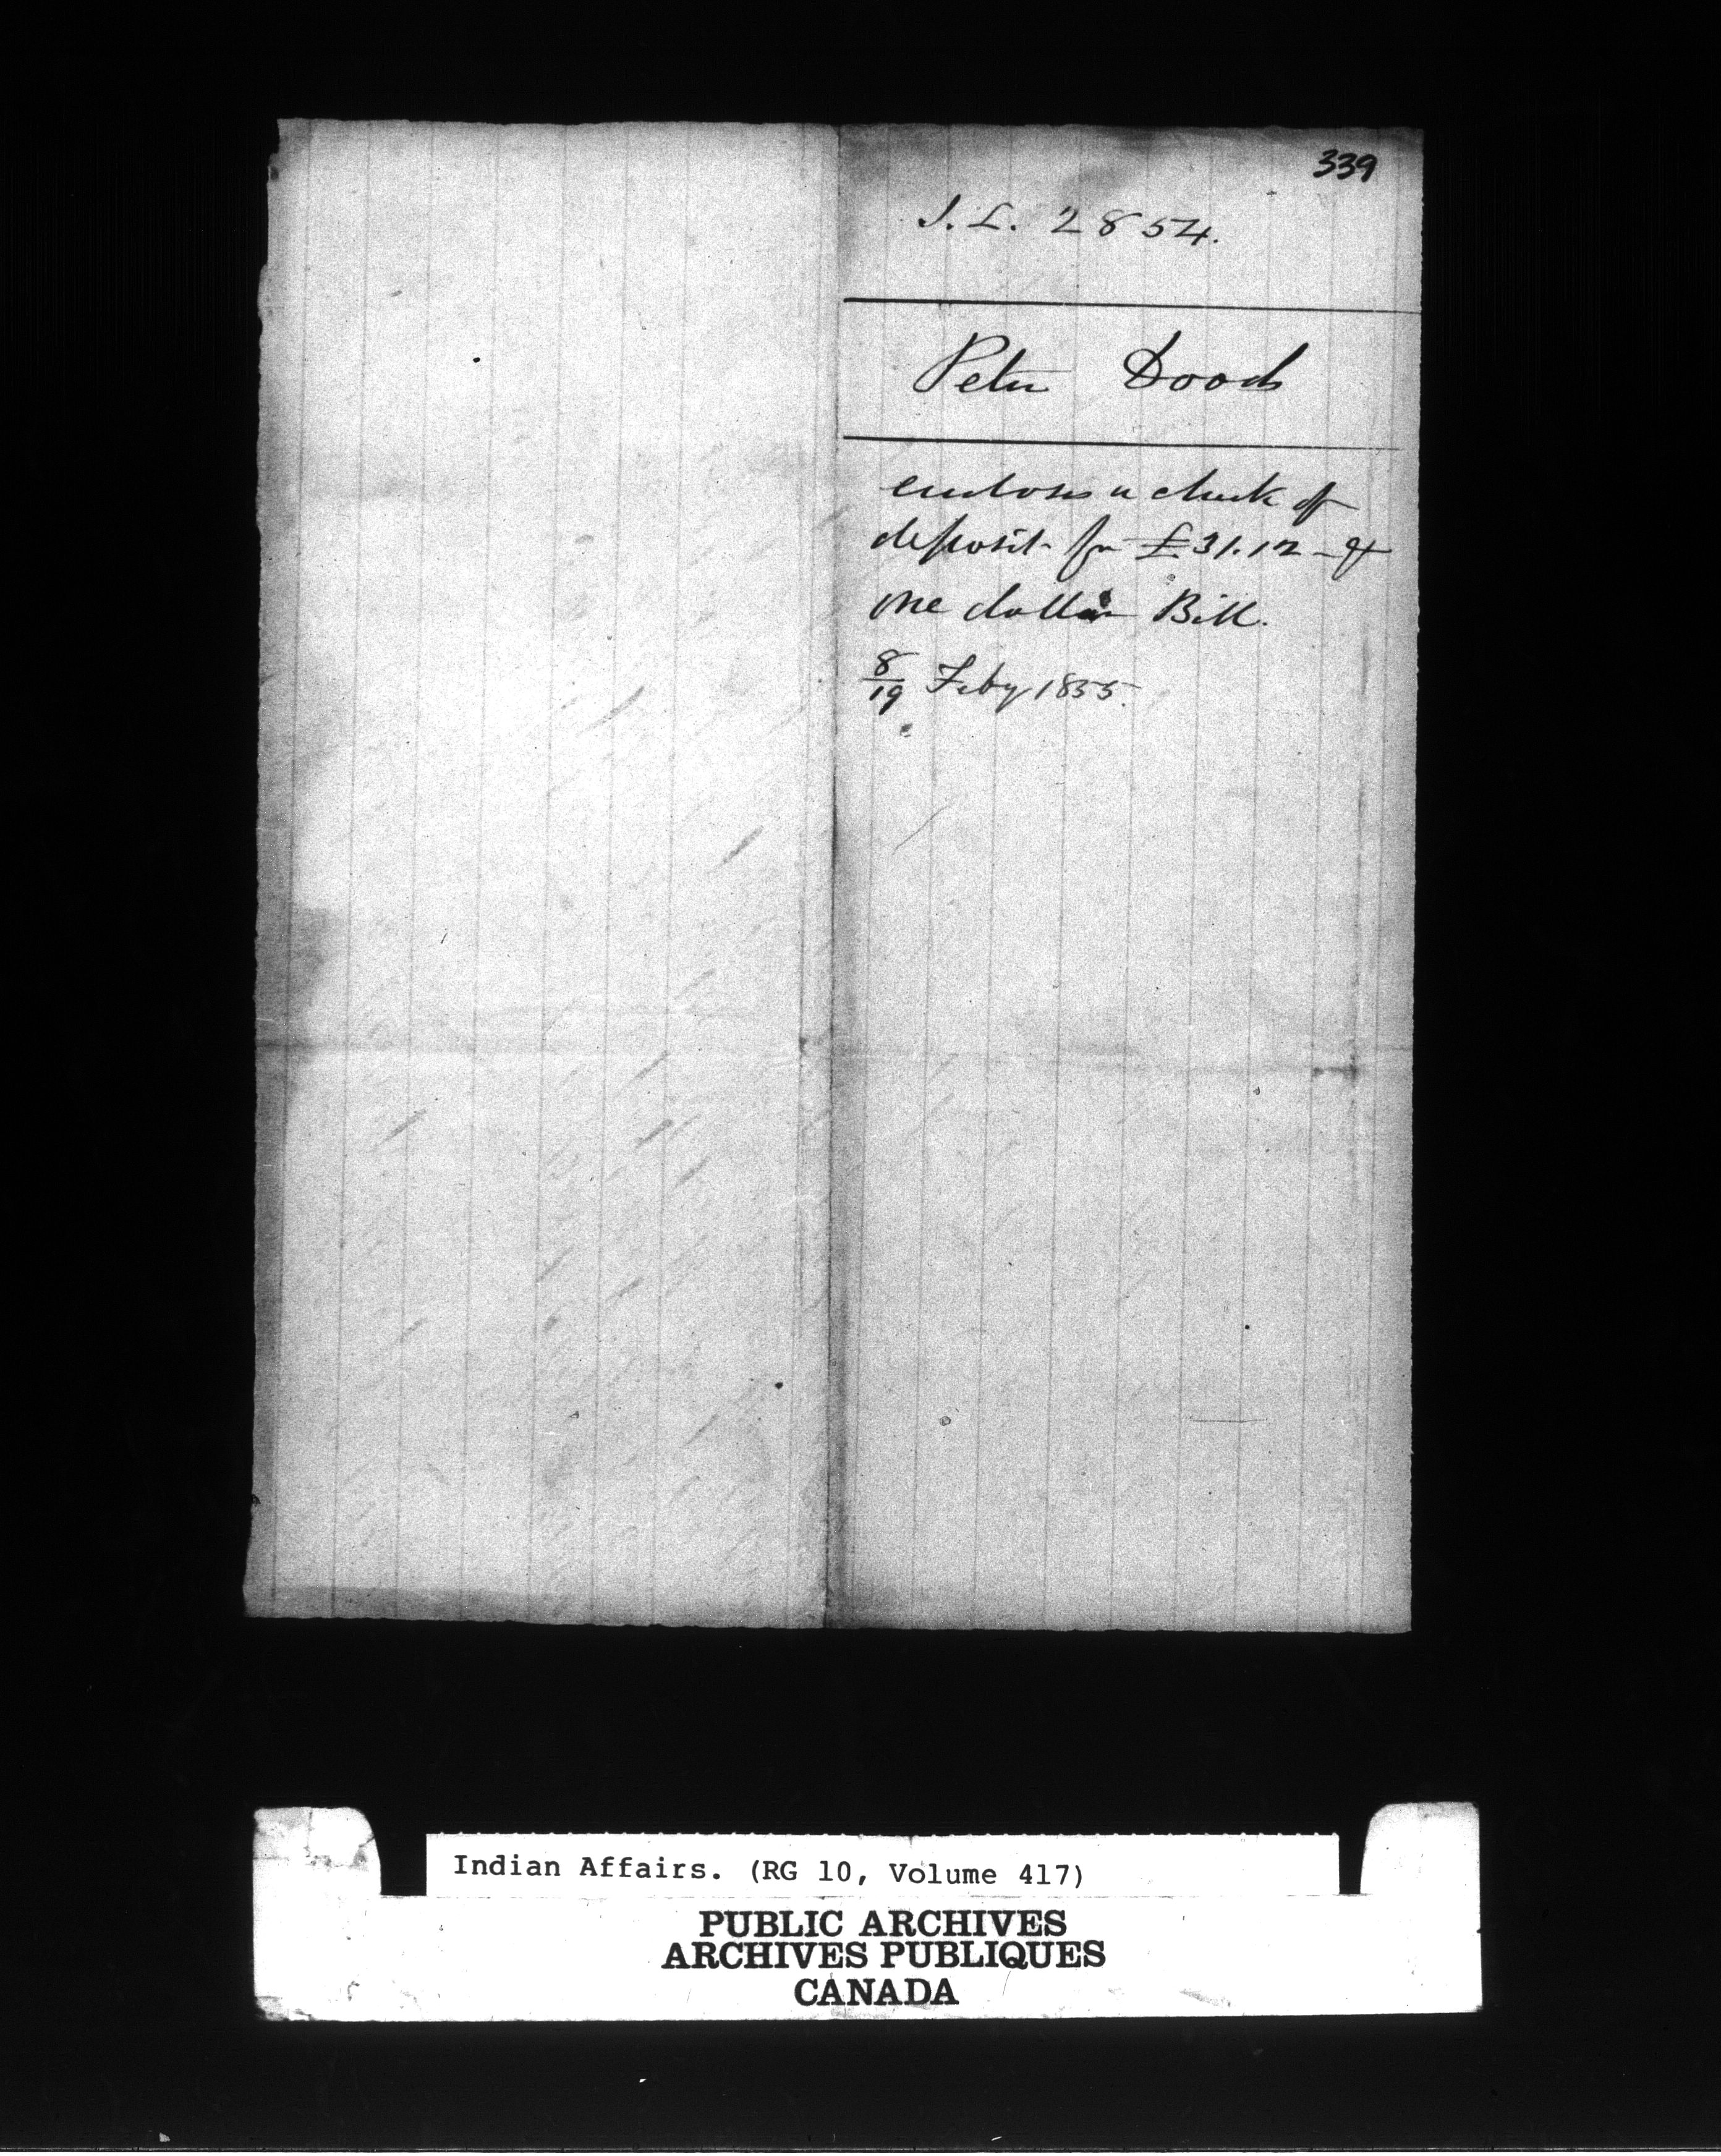 339
I.L. 2854.
Peter Doods
encloses a check of
deposit for £31.12 - &
one dollar Bill.
8/19 Feby 1855.
Indian Affairs. (RG 10, Volume 417)
PUBLIC ARCHIVES
ARCHIVES PUBLIQUES
CANADA